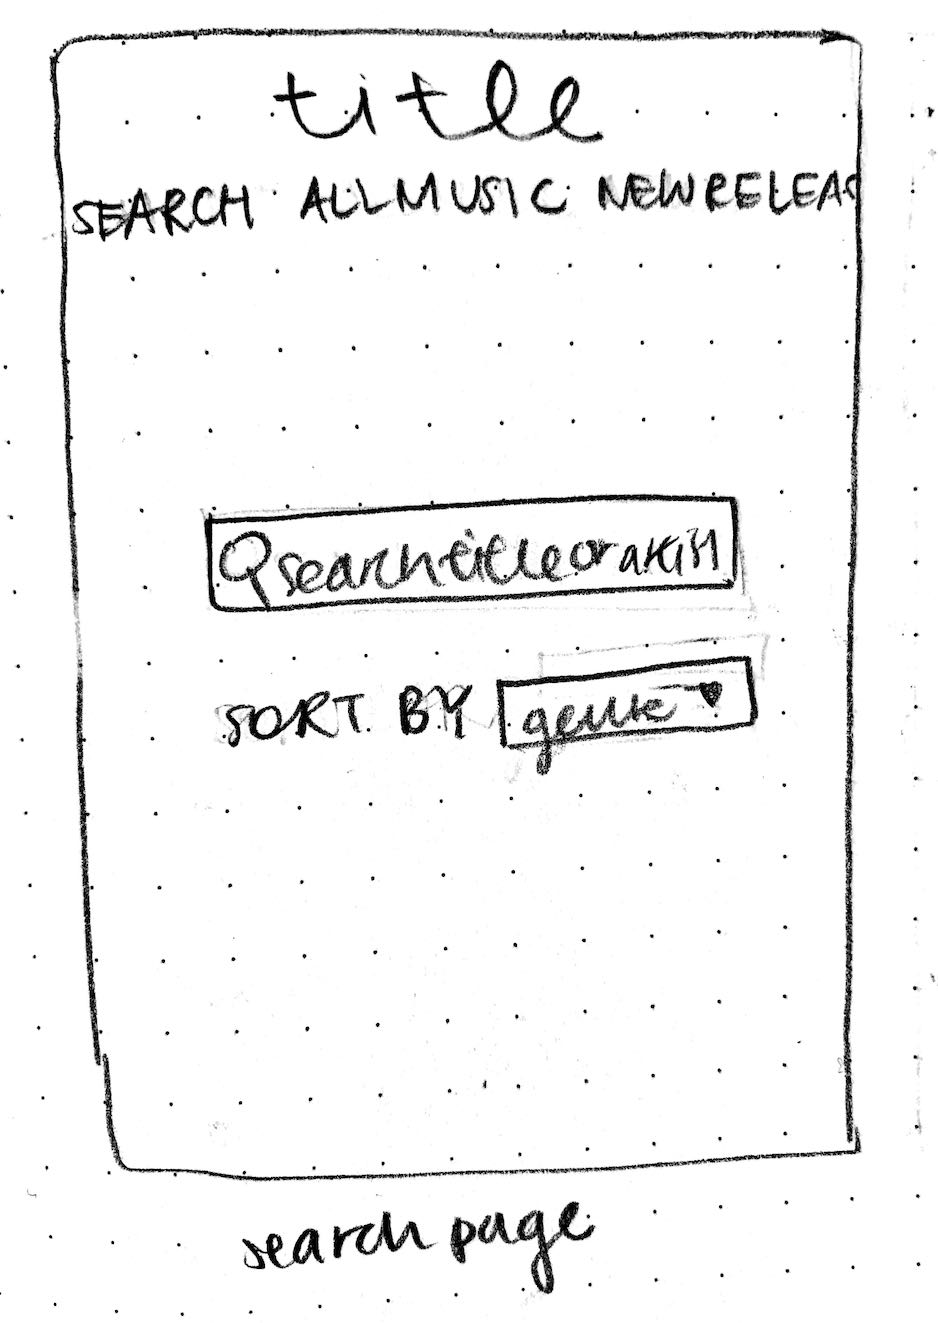 title
SEARCH ALL MUSIC NEW RELEAS
search title or artist
SORT BY genre
search page